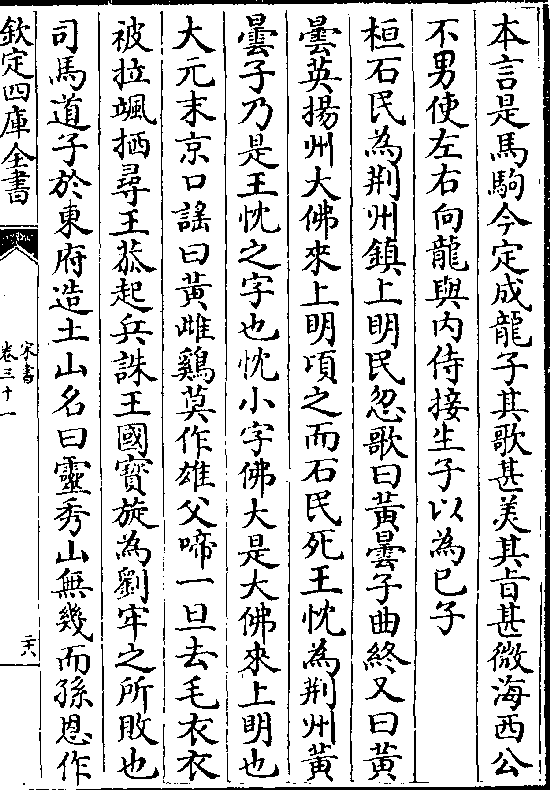 本言是馬駒今定成龍子其歌甚美其旨甚微海西公
不男使左右向龍與内侍接生子以為己子
桓石民為荆州鎮上明民忽歌曰黄曇子曲終又曰黄
曇英揚州大佛來上明頃之而石民死王忱為荆州黄
曇子乃是王忱之字也忱小字佛大是大佛來上明也
大元末京口謡曰黄雌鷄莫作雄父啼一旦去毛衣衣
被拉颯栖尋王恭起兵誅王國寶旋為劉牢之所敗也
司馬道子於東府造土山名曰靈秀山無幾而孫恩作
欽定四庫全書
宋書
卷三十一
二六